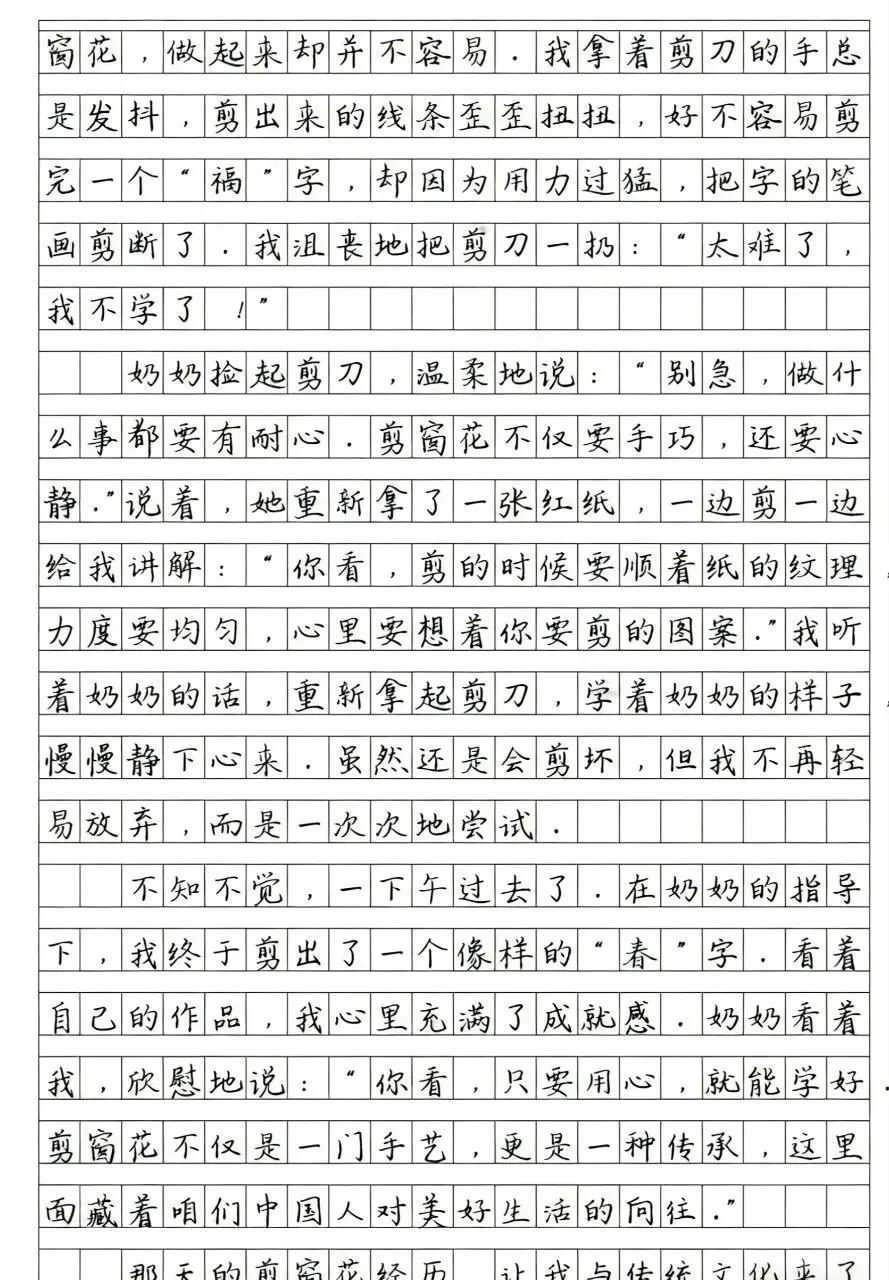 窗花，做起来却并不容易．我拿着剪刀的手总
是发抖，剪出来的线条歪歪扭扭，好不容易剪
完一个“福”字，却因为用力过猛，把字的笔
画剪断了．我沮丧地把剪刀一扔：“太难了，
我不学了！”
奶奶捡起剪刀，温柔地说：“别急，做什
么事都要有耐心．剪窗花不仅要手巧，还要心
静．”说着，她重新拿了一张红纸，一边剪一边
给我讲解：“你看，剪的时候要顺着纸的纹理，
力度要均匀，心里要想着你要剪的图案．”我听
着奶奶的话，重新拿起剪刀，学着奶奶的样子，
慢慢静下心来．虽然还是会剪坏，但我不再轻
易放弃，而是一次次地尝试．
不知不觉，一下午过去了．在奶奶的指导
下，我终于剪出了一个像样的“春”字．看着
自己的作品，我心里充满了成就感．奶奶看着
我，欣慰地说：“你看，只要用心，就能学好．
剪窗花不仅是一门手艺，更是一种传承，这里
面藏着咱们中国人对美好生活的向往．”
那天的剪窗花经历，让我与传统文化来了